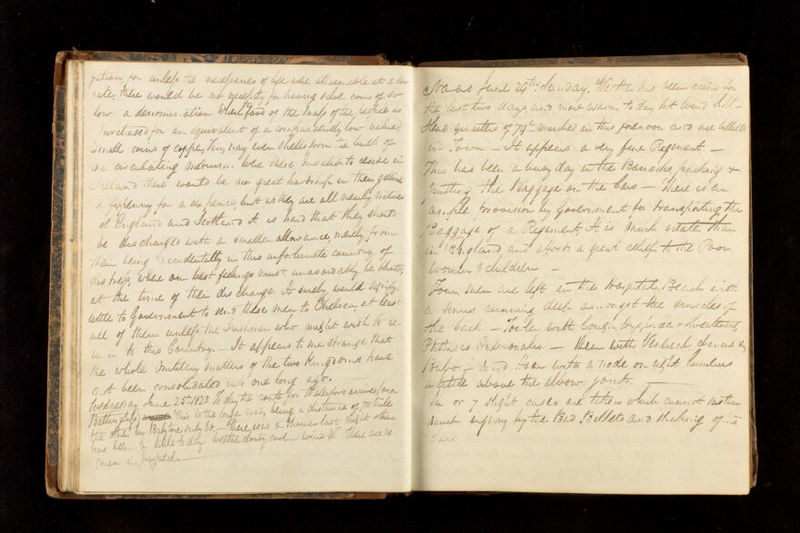 for unless the necessaries of life were attainable at a low
rate, there would be no necessity for having such coins of so
low a denomination. What food of the mass of the people is
purchased for an equivalent of a comparatively low value,
small coins of copper, they may even the
circulating medium. Were these Invalids to reside in
Ireland there would be no great hardship in their getting
a sixpenny, for a sixpence, but as they are all nearly natives
of England and Scotland it is hard that they should
be discharged with a smaller allowance, merely from
their being accidentally in this unfortunate country of
distress, where our best feelings must unavoidably be
at the time of their discharge. It surely would signify
little to Government to send these men to Chelsea, at least
all of them unless the Irishman who might wish to re-
turn to this Country. - It appears to me strange that
the whole Military matters of the two Kingdoms have
not been consolidated into one long ago.
Wednesday June 25th 1823. To day the
This is the being a distance of 70 miles
the other by only 60 - There was a last night there
has been a little to day weather cool - wind W. There are 10
men in Hospital.
Naas June 29th Sunday. Weather has been for
the last two days and more warm to day but wind
Head quarters of 79th marched in this forenoon and are billeted
in Town - It appears a very fine Regiment. -
This has been a busy day in the Barracks, packing &
putting the Baggage on the Cars - There is an
ample provision by Government for transporting the
Baggage of a Regiment, it is much greater than
in England and affords a great relief to the Poor
Women & children -
Four men are left in the Hospital, Beach with
a sinus running deep amongst the muscles of
the back - with Cough, Dyspnoea & threatening
Phthisis Pulmonalis. - with
Bubo, - and with a node on right humerus
a little above the elbow joint. -
6 or 7 slight cases are taken which cannot
much injury by the Bad Billets and shaking of the
Cars